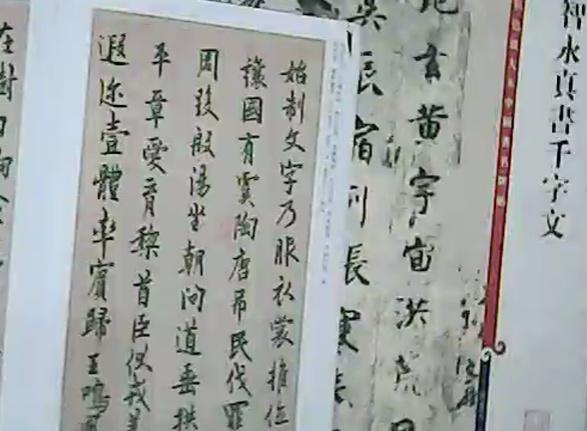 智永真書千字文
地玄黃宇宙洪荒日
昃辰宿列張寒來
始制文字乃服衣裳推位
讓國有虞陶唐吊民伐罪
周發殷湯坐朝問道垂拱
平章愛育黎首臣伏戎羌
遐迩壹體率賓歸王鳴鳳
在樹白駒食